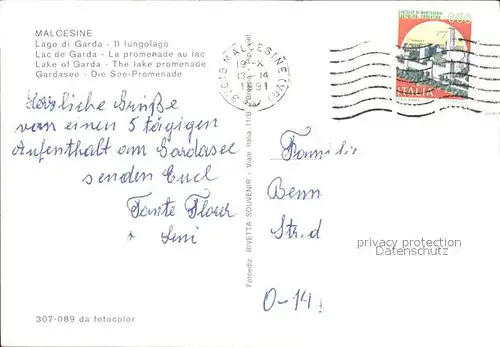 MALCESINE
Lago di Garda - Il lungolago
Lac de Garda - La promenade au lac
Lake of Garda - The lake promenade
Gardasee - Die See-Promenade
37018 MALCESINE (VR)
19-X
13-14
1991
ITALIA
Herzliche Grüße
von einen 5 tägigen
Aufenthalt am Gardasee
senden Euch
Tante
+
Fotoediz. RIVETTA SOUVENIR - Viale Italia
Familie
Benn
Str.d
O-14!
privacy protection
Datenschutz
307-089 da fotocolor